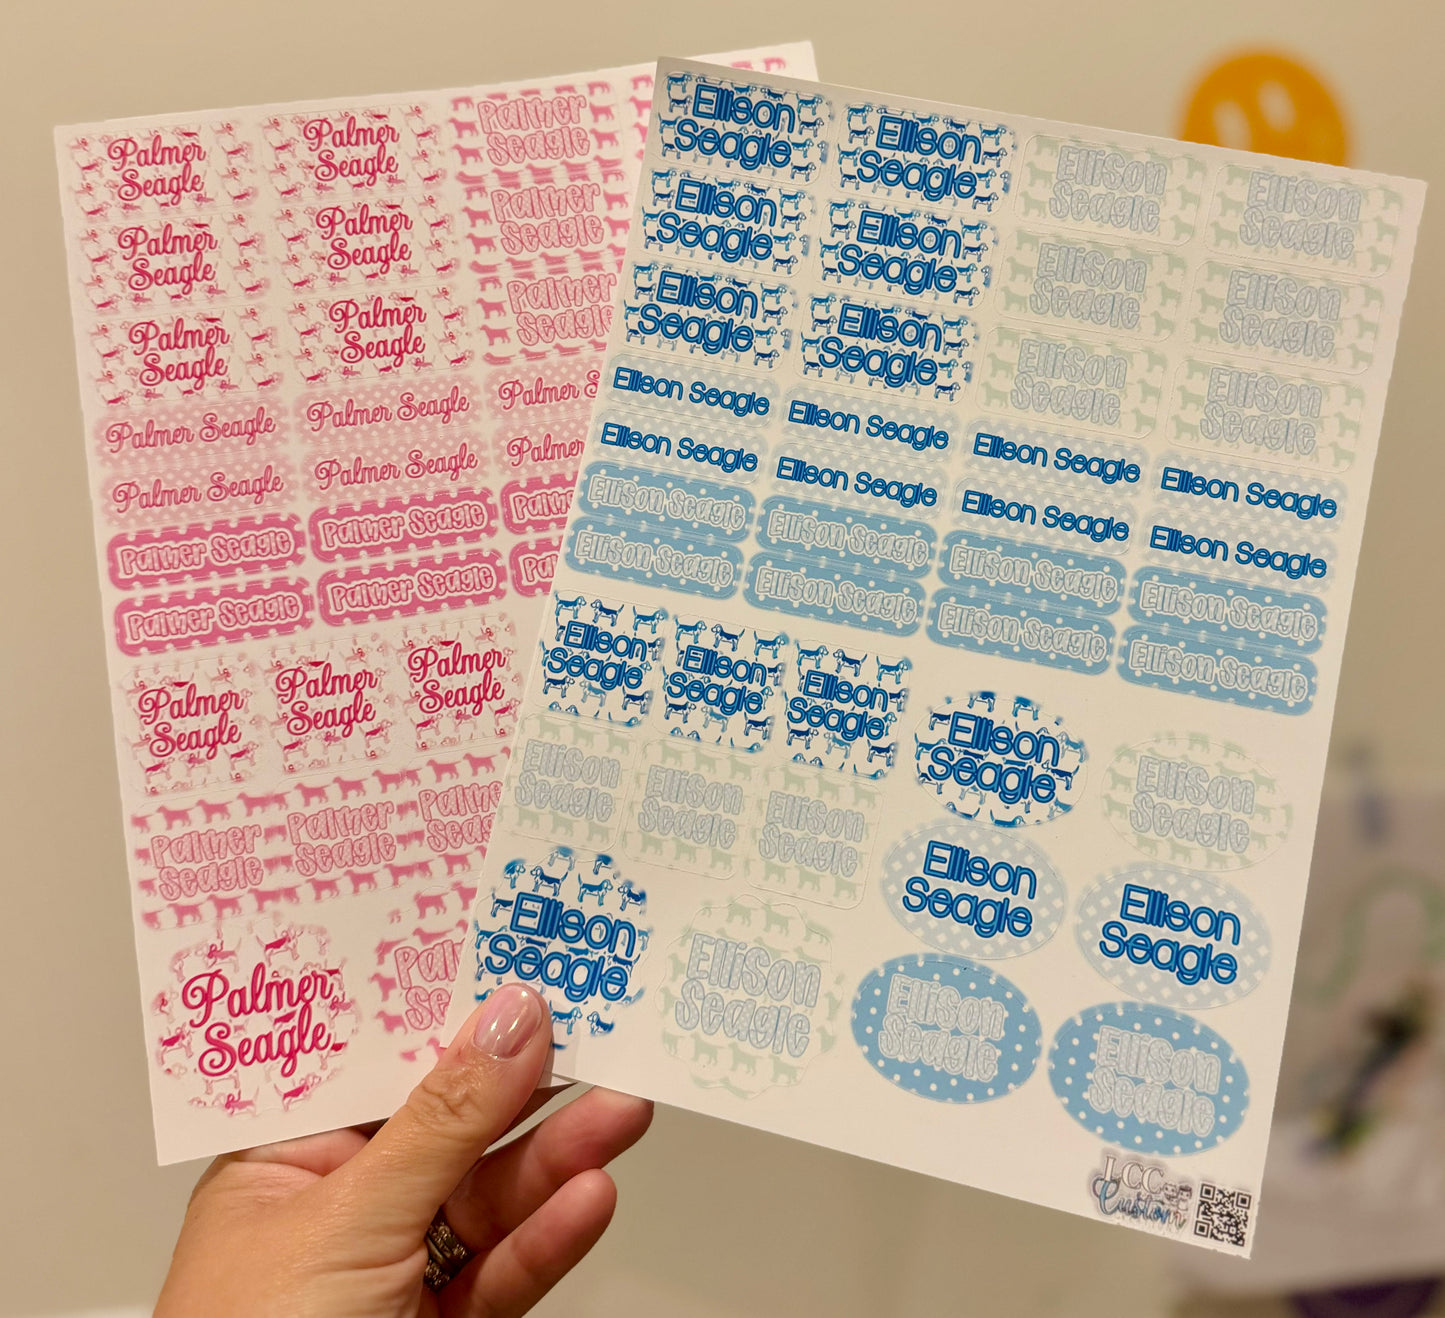 Palmer
Seagle
Palmer
Seagle
Palmer
Seagle
Palmer
Seagle
Palmer
Seagle
Palmer
Seagle
Palmer
Seagle
Palmer
Seagle
Palmer
Seagle
Palmer Seagle
Palmer Seagle
Palmer Seagle
Palmer Seagle
Palmer Seagle
Palmer Seagle
Palmer Seagle
Palmer Seagle
Palmer
Seagle
Palmer
Seagle
Palmer
Seagle
Palmer
Seagle
Palmer
Seagle
Palmer
Seagle
Palmer
Seagle
Ellison
Seagle
Ellison
Seagle
Ellison
Seagle
Ellison
Seagle
Ellison
Seagle
Ellison
Seagle
Ellison
Seagle
Ellison
Seagle
Ellison
Seagle
Ellison
Seagle
Ellison
Seagle
Ellison
Seagle
Ellison Seagle
Ellison Seagle
Ellison Seagle
Ellison Seagle
Ellison Seagle
Ellison Seagle
Ellison Seagle
Ellison Seagle
Ellison Seagle
Ellison Seagle
Ellison Seagle
Ellison Seagle
Ellison Seagle
Ellison Seagle
Ellison Seagle
Ellison Seagle
Ellison
Seagle
Ellison
Seagle
Ellison
Seagle
Ellison
Seagle
Ellison
Seagle
Ellison
Seagle
Ellison
Seagle
Ellison
Seagle
Ellison
Seagle
Ellison
Seagle
Ellison
Seagle
Ellison
Seagle
Ellison
Seagle
Ellison
Seagle
LCC
Custom